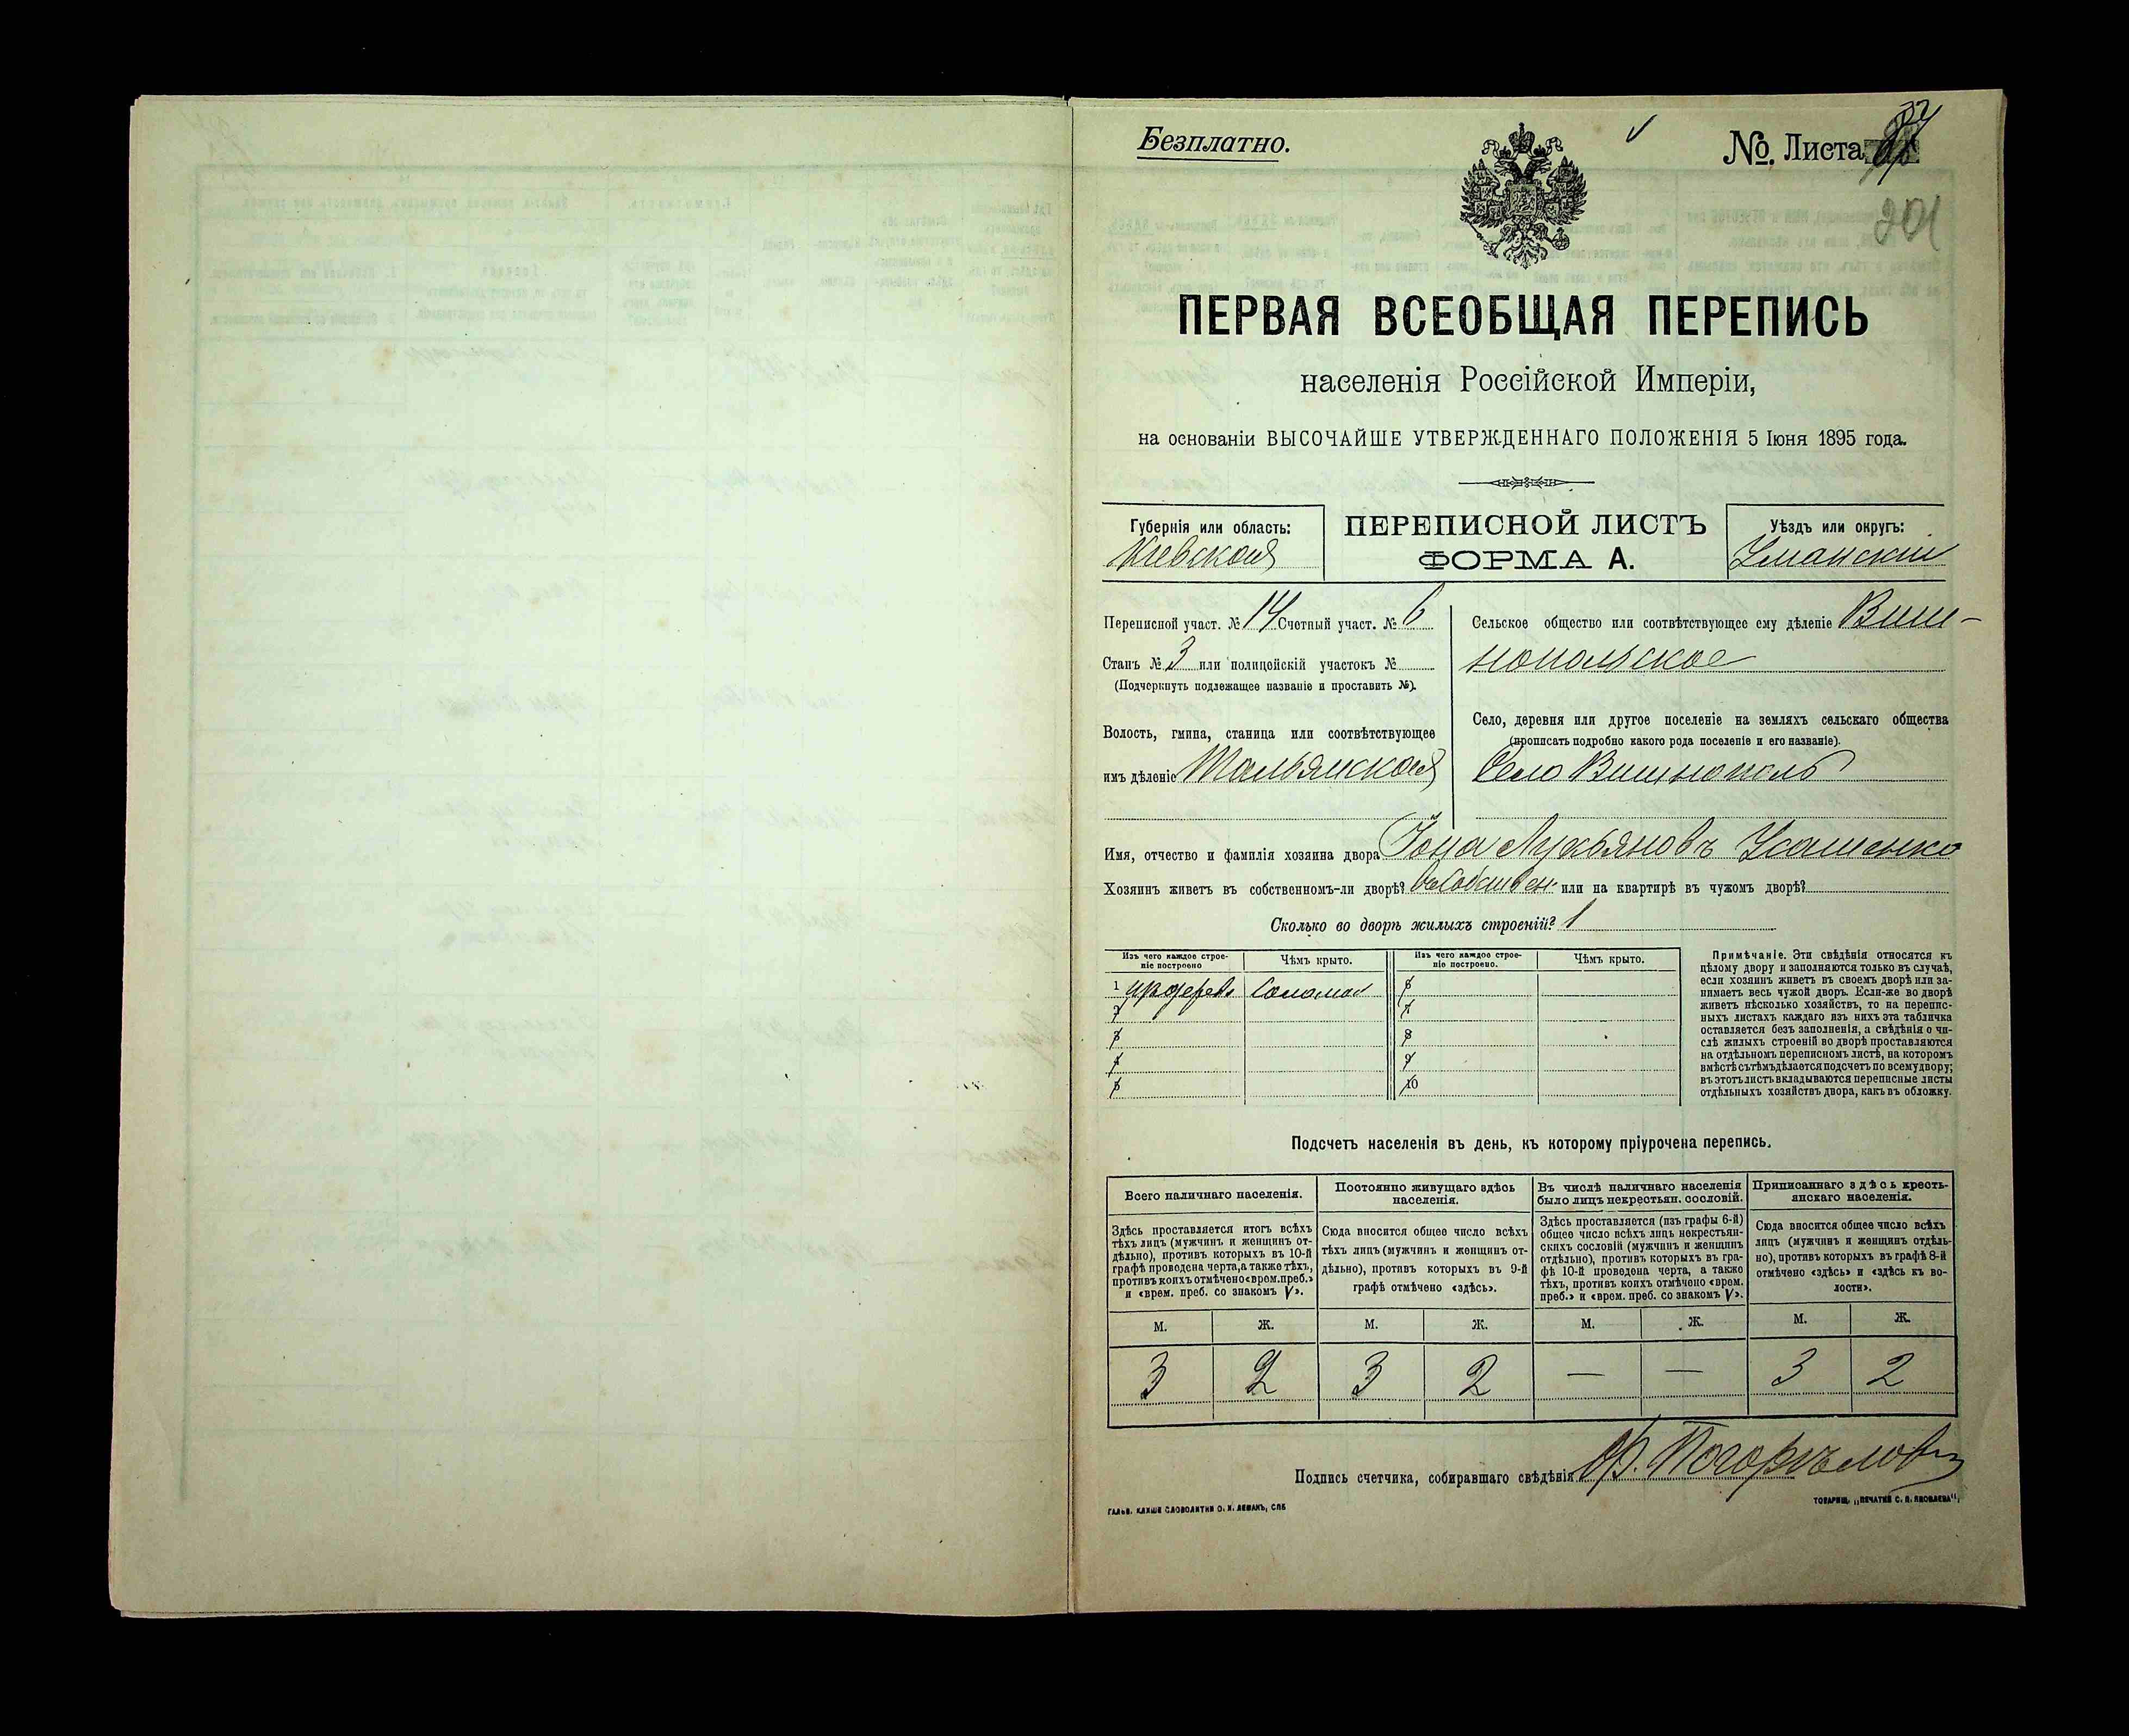 Безплатно.
№. Листа
201
ПЕРВАЯ ВСЕОБЩАЯ ПЕРЕПИСЬ
населенія Россійской Имперіи,
на основаніи ВЫСОЧАЙШЕ УТВЕРЖДЕННАГО ПОЛОЖЕНІЯ 5 Іюня 1895 года.
Губернія или область:
Кіевская
ПЕРЕПИСНОЙ ЛИСТЪ
ФОРМА А.
Уѣздъ или округъ:
Уманскій
Переписной участ. № 14 Счетный участ. № 6
Станъ № 3 или полицейскій участокъ №
(Подчеркнуть подлежащее названіе и проставить №).
Волость, гмина, станица или соотвѣтствующее
имъ дѣленіе Тальянская
Сельское общество или соотвѣтствующее ему дѣленіе Виш-
нопольское
Село, деревня или другое поселеніе на земляхъ сельскаго общества
(прописать подробно какого рода поселеніе и его названіе).
Село Вишнополь
Имя, отчество и фамилія хозяина двора Іона Лукьяновъ Усашенко
Хозяинъ живетъ въ собственномъ-ли дворѣ? въ собствен. или на квартирѣ въ чужомъ дворѣ?
Сколько во дворѣ жилыхъ строеній? 1
Изъ чего каждое строе-
ніе построено
Чѣмъ крыто.
Изъ чего каждое строе-
ніе построено.
Чѣмъ крыто.
1 Соломой 6
2 7
3 8
4 9
5 10
Примѣчаніе. Эти свѣдѣнія относятся къ
цѣлому двору и заполняются только въ случаѣ,
если хозяинъ живетъ въ своемъ дворѣ или за-
нимаетъ весь чужой дворъ. Если-же во дворѣ
живетъ нѣсколько хозяйствъ, то на перепис-
ныхъ листахъ каждаго изъ нихъ эта табличка
оставляется безъ заполненія, а свѣдѣнія о чи-
слѣ жилыхъ строеній во дворѣ проставляются
на отдѣльномъ переписномъ листѣ, на которомъ
вмѣстѣ съ тѣмъ дѣлается подсчетъ по всему двору;
въ этотъ листъ вкладываются переписные листы
отдѣльныхъ хозяйствъ двора, какъ въ обложку.
Подсчетъ населенія въ день, къ которому пріурочена перепись.
Всего наличнаго населенія.
Постоянно живущаго здѣсь
населенія.
Въ числѣ наличнаго населенія
было лицъ некрестьян. сословій.
Приписаннаго здѣсь кресть-
янскаго населенія.
Здѣсь проставляется итогъ всѣхъ
тѣхъ лицъ (мужчинъ и женщинъ от-
дѣльно), противъ которыхъ въ 10-й
графѣ проведена черта, а также тѣхъ,
противъ коихъ отмѣчено «врем. преб.»
и «врем. преб. со знакомъ V».
Сюда вносится общее число всѣхъ
тѣхъ лицъ (мужчинъ и женщинъ от-
дѣльно), противъ которыхъ въ 9-й
графѣ отмѣчено «здѣсь».
Здѣсь проставляется (изъ графы 6-й)
общее число всѣхъ лицъ некрестьян-
скихъ сословій (мужчинъ и женщинъ
отдѣльно), противъ которыхъ въ гра-
фѣ 10-й проведена черта, а также
тѣхъ, противъ коихъ отмѣчено «врем.
преб.» и «врем. преб. со знакомъ V».
Сюда вносится общее число всѣхъ
лицъ (мужчинъ и женщинъ отдѣль-
но), противъ которыхъ въ графѣ 8-й
отмѣчено «здѣсь» и «здѣсь къ во-
лости».
М. Ж. М. Ж. М. Ж. М. Ж.
3 2 3 2 — — 3 2
Подпись счетчика, собиравшаго свѣдѣнія Ф. Погорѣловъ
ГАЛЬВ. КЛИШЕ СЛОВОЛИТНИ О. И. ЛЕМАНЪ, СПБ
ТОВАРИЩ. „ПЕЧАТНЯ С. П. ЯКОВЛЕВА".